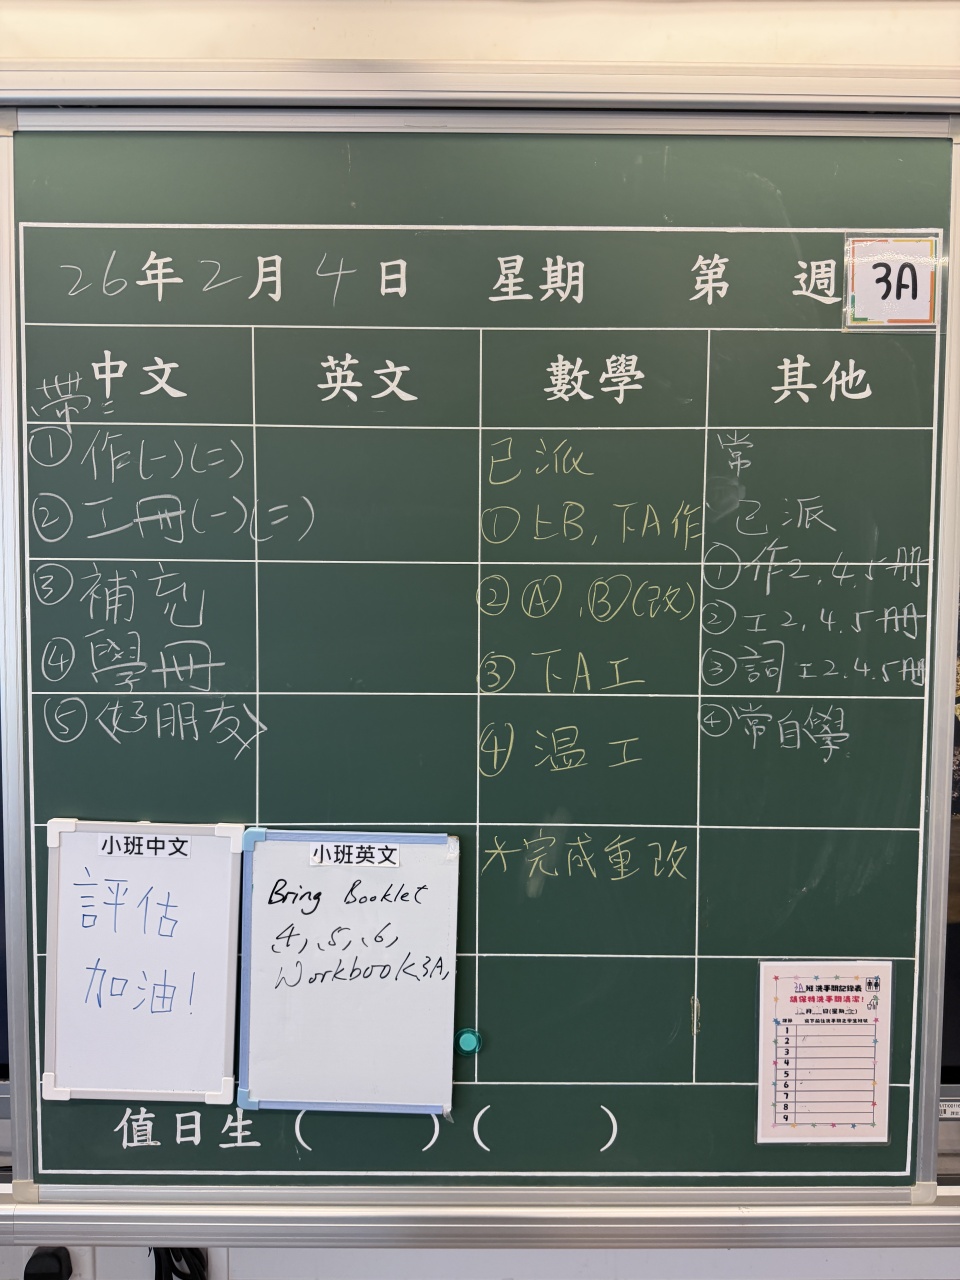 26年2月4日 星期 第 週
3A
中文
帶:
①作(一)(二)
②工冊(一)(二)
③補充
④學冊
⑤〈好朋友〉
英文
數學
已派
①上B,下A作
②Ⓐ,Ⓑ(改)
③下A工
④温工
完成重改
其他
常
已派
①作2.4.5册
②工2.4.5册
③詞工2.4.5册
④常自學
小班中文
評估
加油!
小班英文
Bring Booklet
4,5,6,
Workbook3A,
3A班洗手間記錄表
請保持洗手間清潔!
1
2
3
4
5
6
7
8
9
值日生( )( )